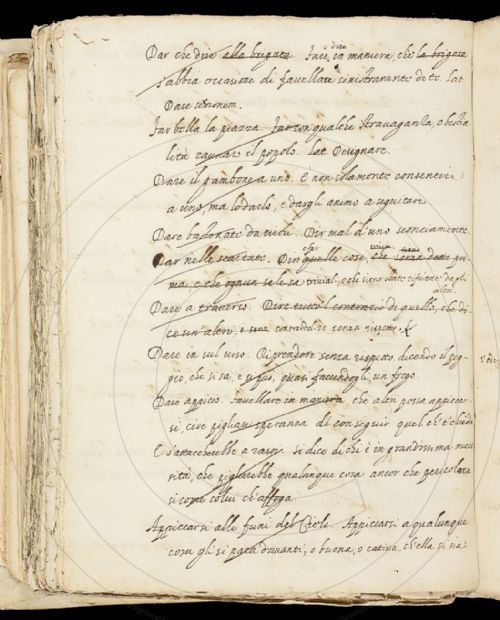 Dar che dire alla brigata. Fare, o dire in maniera, che la brigata
s'abbia occasione di favellare sinistramente di te. Lat.
Dare sermonem.
Far bella la piazza. Far con qualche stravaganza, o bestia
lità raunare il popolo. Lat.
Dare il gambone a uno. È non solamente consentire
a uno, ma lodarlo, e dargli animo a seguitare
Dare bastonate da ciechi. Dir mal d'uno sconciamente.
Dar nelle scartate. Dir quelle cose, che
ma, e che ognun se le sa
altri.
Dare a traverso. Dire tutto'l contrario di quello, che di
ce un'altro, e contradire senza rispetto.
Dare in sul viso. Riprendere senza rispetto dicendo il peg
gio, che si sa, e si può, quasi facendogli un fregio
Dare appicco. Favellare in maniera, che altri possa appiccar
si, cioè pigliare speranza di conseguir quel ch'e' chiede
E' s'attaccherebbe a' rasoi. si dice di chi è in grandissima neces
sità, che piglierebbe qualunque cosa ancor che pericolosa
si come colui ch'affoga
Appiccarsi alle funi del Cielo. Appiccarsi a qualunque
cosa gli si para davanti, o buona, o cattiva, ch'ella si sia